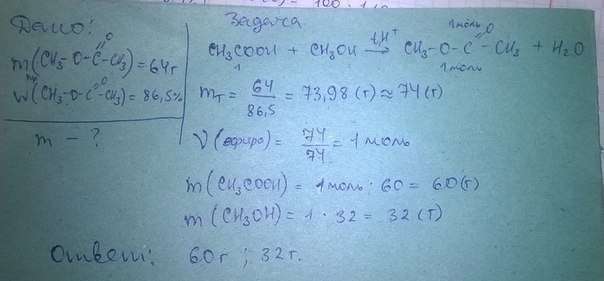 Дано:
m(CH₃-O-C(=O)-CH₃) = 64г
W(CH₃-O-C(=O)-CH₃) = 86,5%
m - ?
Задача
1 моль
CH₃COOH + CH₃OH →(t,H⁺) CH₃-O-C(=O)-CH₃ + H₂O
1 1 моль
mт = 64/86,5 = 73,98 (г) ≈ 74 (г)
ν(эфира) = 74/74 = 1 моль
m(CH₃COOH) = 1 моль · 60 = 60(г)
m(CH₃OH) = 1 · 32 = 32 (г)
Ответ: 60г ; 32г.